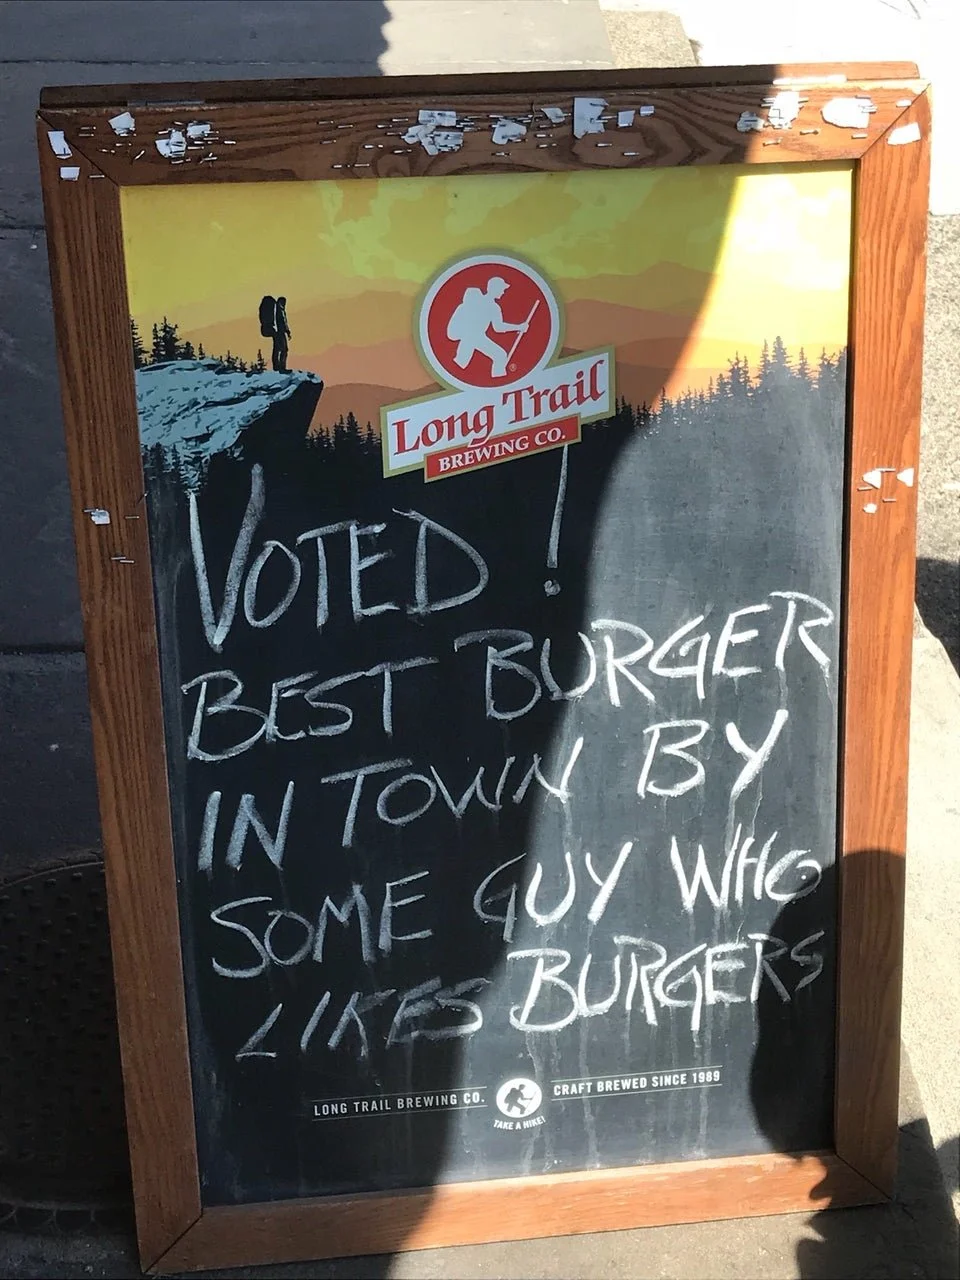 Long Trail
BREWING CO.
VOTED!
BEST BURGER
IN TOWN BY
SOME GUY WHO
LIKES BURGERS
LONG TRAIL BREWING CO. CRAFT BREWED SINCE 1989
TAKE A HIKE!